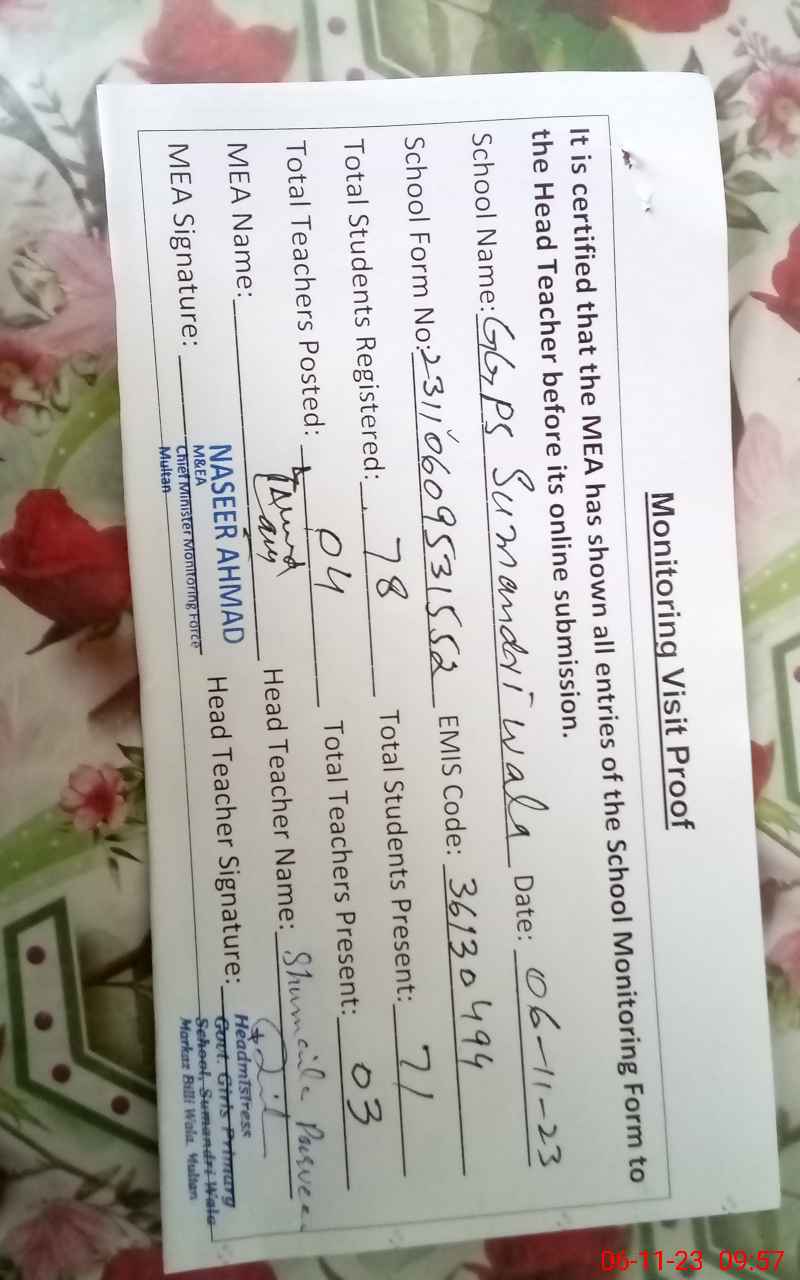 Monitoring Visit Proof
It is certified that the MEA has shown all entries of the School Monitoring Form to
the Head Teacher before its online submission.
School Name: GGPS Sumandri Wala Date: 06-11-23
School Form No: 23110609531552 EMIS Code: 36130494
Total Students Registered: 78 Total Students Present: 71
Total Teachers Posted: 04 Total Teachers Present: 03
MEA Name: Head Teacher Name: Shumaila Parveen
MEA Signature: Head Teacher Signature:
NASEER AHMAD
M&EA
Chief Minister Monitoring Force
Multan
Headmistress
Govt. Girls Primary
School, Sumandri Wala
Markaz Billi Wala, Multan
06-11-23 09:57